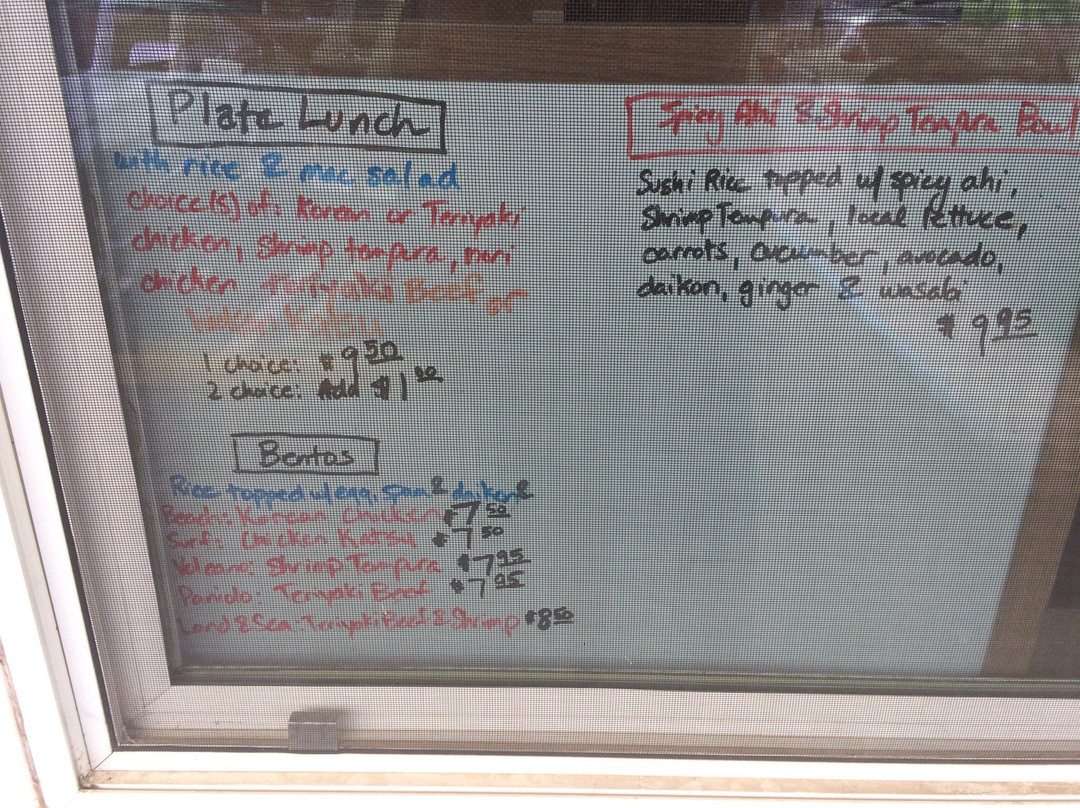 Plate Lunch
with rice & mac salad
choice(s) of: Korean or Teriyaki
chicken, shrimp tempura, nori
chicken Teriyaki Beef or
Katsu
1 choice: $9.50
2 choice: Add $1.00
Bentos
Rice topped w/egg, spam & daikon &
Beach: Korean Chicken $7.50
Surf: Chicken Katsu $7.50
Volcano: Shrimp Tempura $7.95
Paniolo: Teriyaki Beef $7.95
Land & Sea: Teriyaki Beef & Shrimp $8.50
Spicy Ahi & Shrimp Tempura Bowl
Sushi Rice topped w/ spicy ahi,
Shrimp Tempura, local lettuce,
carrots, cucumber, avocado,
daikon, ginger & wasabi
$9.95